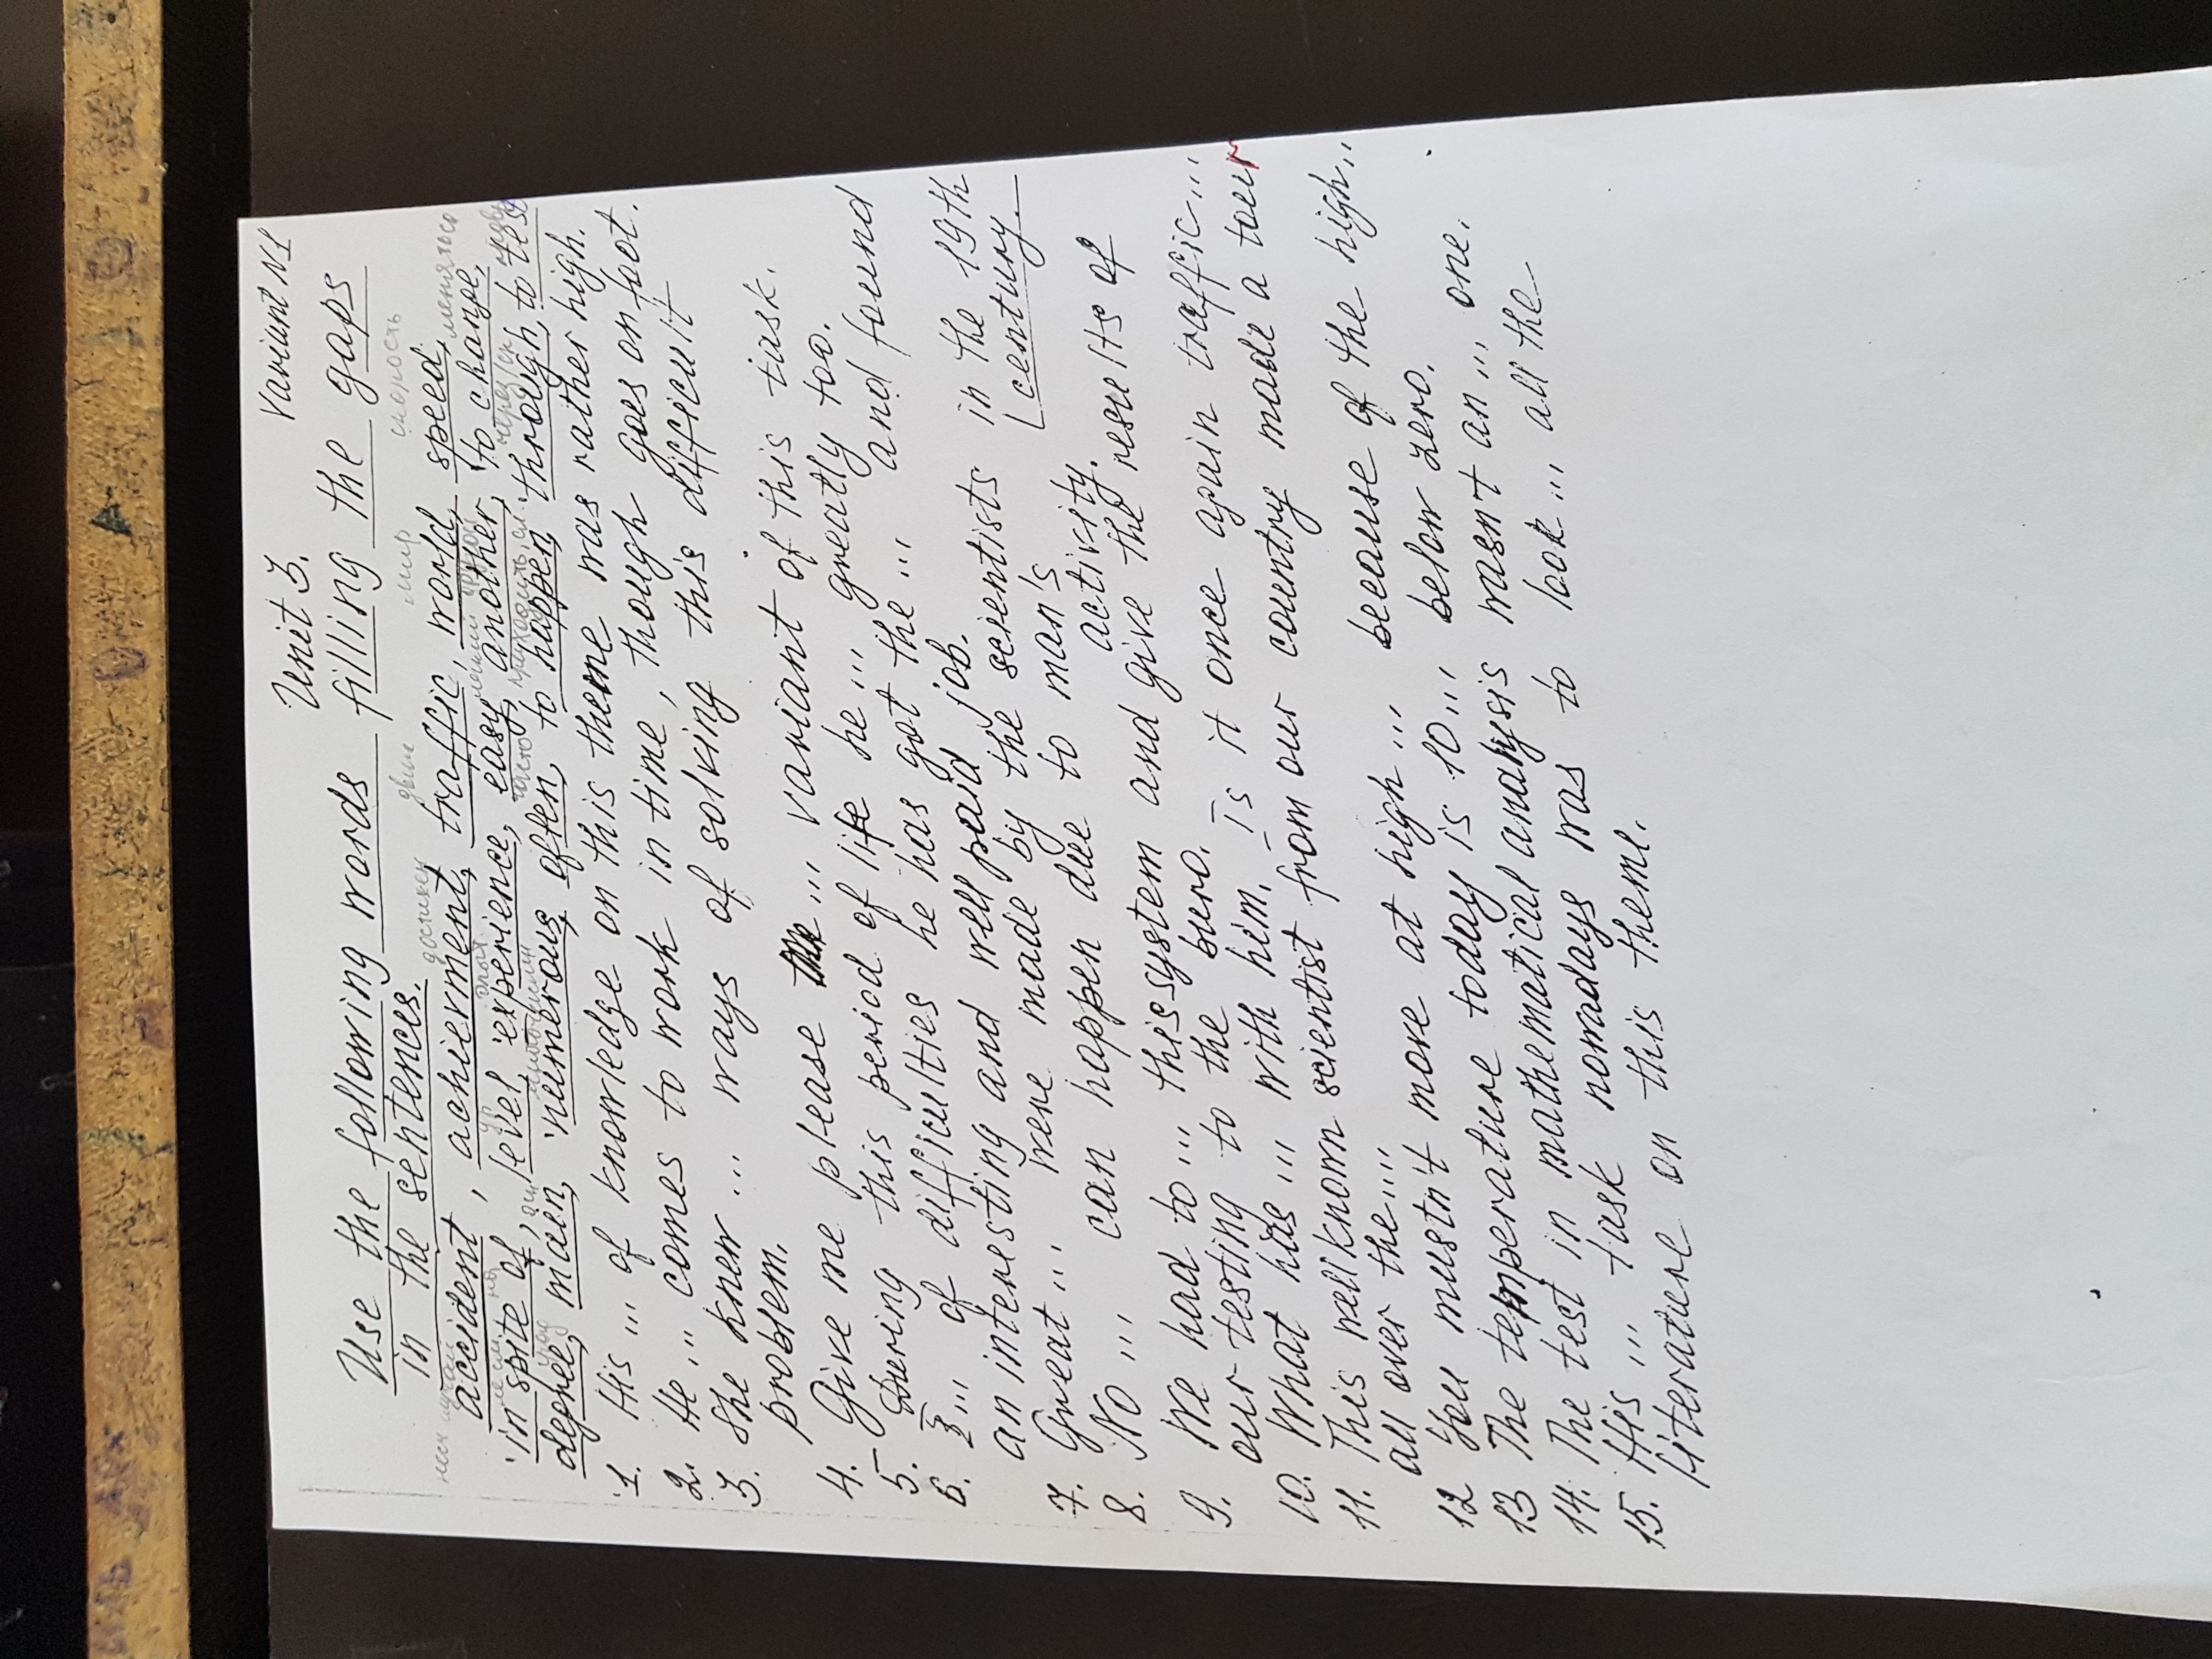 Unit 3. Variant N1
Use the following words filling the gaps
in the sentences.
достижен движ мир скорость
accident, achievment, traffic, world, speed,
опыт меняться
in spite of, level, experience, easy, another, to change,
degree, main, numerous, often, to happen, through, to test
1. His ... of knowledge on this theme was rather high.
2. He ... comes to work in time, though goes on foot.
3. She knew ... ways of solving this difficult
problem.
4. Give me please ... variant of this task.
5. During this period of life he ... greatly too.
6. ... of difficulties he has got the ... and found
an interesting and well paid job.
7. Great ... were made by the scientists in the 19th
century.
8. No ... can happen due to man's activity.
9. We had to ... this system and give the results of
our testing to the buro.
10. What has ... with him. Is it once again traffic ...
11. This wellknown scientist from our country made a tour
all over the ...
12 You mustn't move at high ... because of the high ..
13 The temperature today is 10 ... below zero.
14. The test in mathematical analysis wasn't an ... one.
15. His ... task nowadays was to look ... all the
literature on this theme.